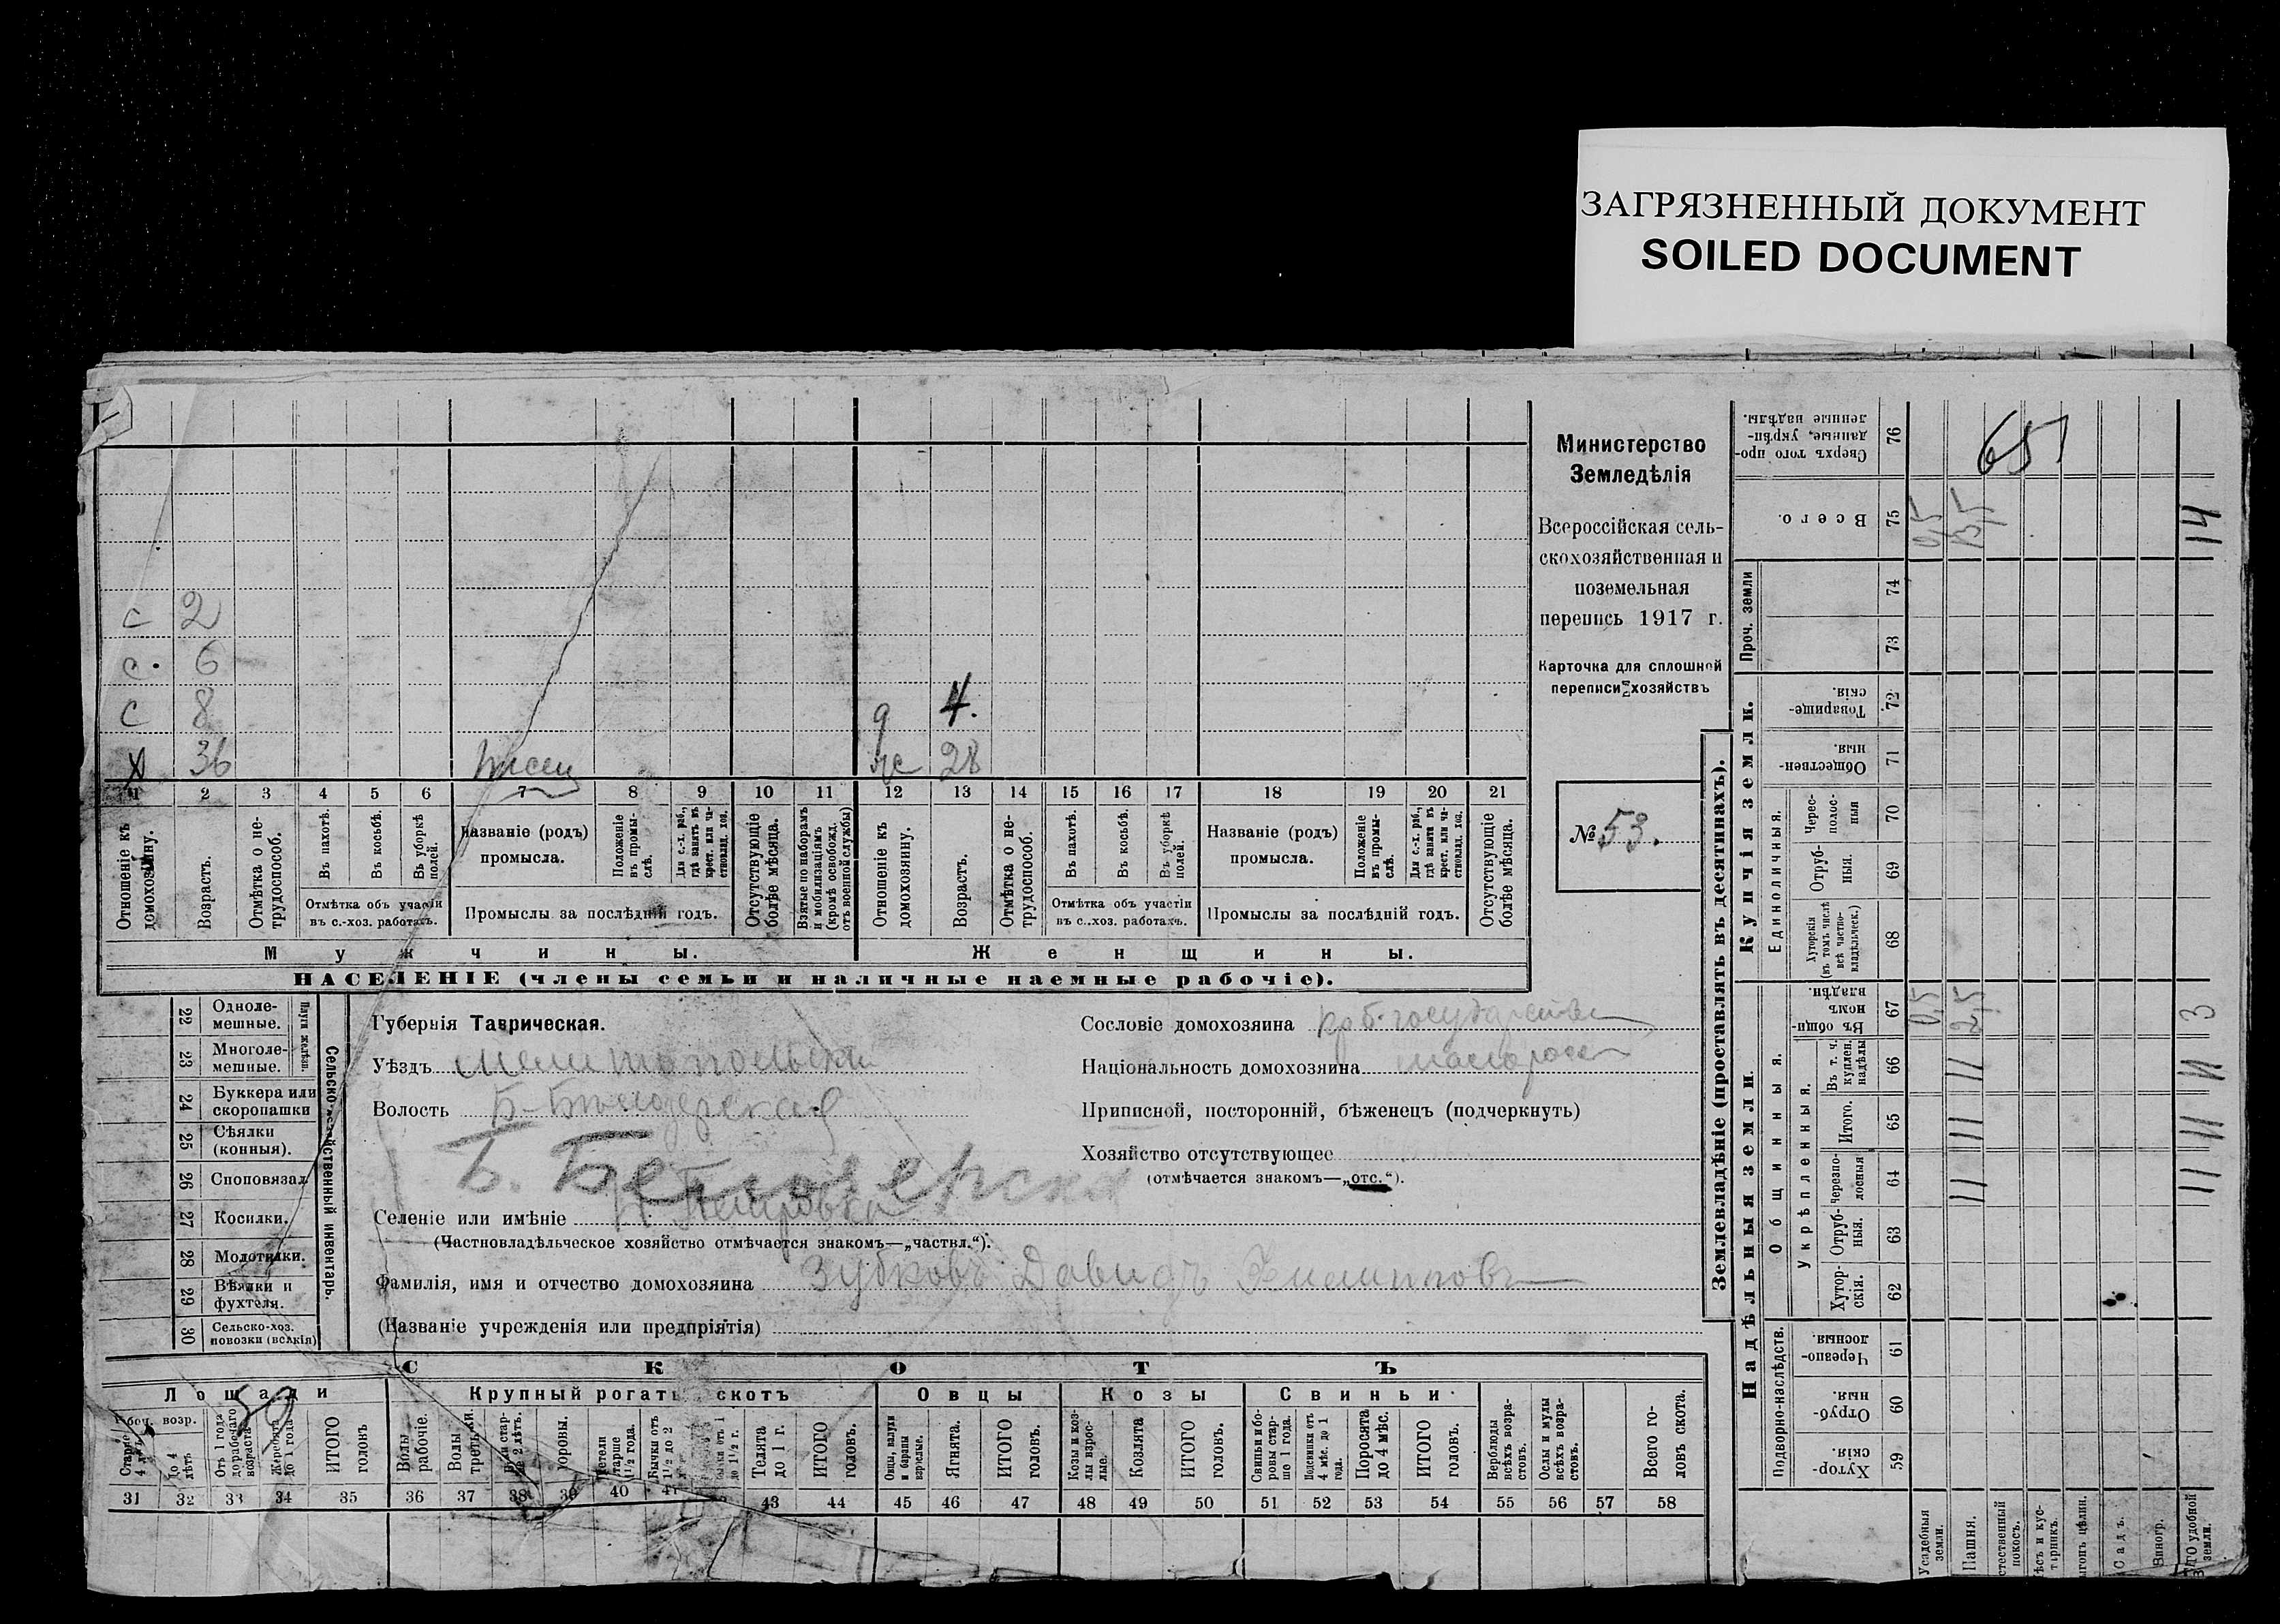 ЗАГРЯЗНЕННЫЙ ДОКУМЕНТ
SOILED DOCUMENT
с 2
с. 6
с 8
х 36
писец
д 4.
ж 28
1 2 3 4 5 6 7 8 9 10 11 12 13 14 15 16 17 18 19 20 21
Отношеніе къ домохозяину.
Возрастъ.
Отмѣтка о нетрудоспособ.
Въ пахотѣ.
Въ косьбѣ.
Въ уборкѣ полей.
Отмѣтка объ участіи
въ с.-хоз. работахъ.
Названіе (родъ)
промысла.
Положеніе въ промыслѣ.
Для с.-х. раб., гдѣ занятъ въ крест. или частновлад. хоз.
Промыслы за послѣдній годъ.
Отсутствующіе болѣе мѣсяца.
Взятые по наборамъ и мобилизаціямъ (кромѣ освобожд. отъ военной службы)
Отношеніе къ домохозяину.
Возрастъ.
Отмѣтка о нетрудоспособ.
Въ пахотѣ.
Въ косьбѣ.
Въ уборкѣ полей.
Отмѣтка объ участіи
въ с.-хоз. работахъ.
Названіе (родъ)
промысла.
Положеніе въ промыслѣ.
Для с.-х. раб., гдѣ занята въ крест. или частновлад. хоз.
Промыслы за послѣдній годъ.
Отсутствующіе болѣе мѣсяца.
Мужчины.
Женщины.
НАСЕЛЕНІЕ (члены семьи и наличные наемные рабочіе).
Министерство
Земледѣлія
Всероссійская сель-
скохозяйственная и
поземельная
перепись 1917 г.
Карточка для сплошной
переписи хозяйствъ
№ 53.
22 Одноле-
мешные.
23 Многоле-
мешные.
Плуги желѣзн.
24 Буккера или
скоропашки
25 Сѣялки
(конныя).
26 Сноповязал.
27 Косилки.
28 Молотилки.
29 Вѣялки и
фухтеля.
30 Сельско-хоз.
повозки (всякія)
Сельско-хозяйственный инвентарь.
Губернія Таврическая.
Уѣздъ Мелитопольскій
Волость Б-Бѣлозерская
Б. Белозерская
Селеніе или имѣніе
(Частновладѣльческое хозяйство отмѣчается знакомъ—„частвл.“).
Фамилія, имя и отчество домохозяина Зубковъ Давидъ Филипповъ
(Названіе учрежденія или предпріятія)
Сословіе домохозяина
Національность домохозяина малоросс
Приписной, посторонній, бѣженецъ (подчеркнуть)
Хозяйство отсутствующее
(отмѣчается знакомъ—„отс.“).
СКОТЪ
Лошади
Рабоч. возр.
Старше 4 лѣтъ
До 4 лѣтъ
Отъ 1 года до рабочаго возраста
Жеребята до 1 года
ИТОГО головъ
Крупный рогатый скотъ
Волы рабочіе.
Волы третьяки.
Быки стар- ше 2 лѣтъ.
Коровы.
Нетели старше 1 1/2 года.
Бычки отъ 1 1/2 до 2
Телята до 1 г.
ИТОГО головъ.
Овцы
Овцы, валухи и бараны взрослые.
Ягнята.
ИТОГО головъ.
Козы
Козы и козлы взрослые.
Козлята
ИТОГО головъ.
Свиньи
Свиньи и боровы старше 1 года.
Подсвинки отъ 4 мѣс. до 1 года.
Поросята до 4 мѣс.
ИТОГО головъ.
Верблюды всѣхъ возрастовъ.
Ослы и мулы всѣхъ возрастовъ.
Всего головъ скота.
31 32 33 34 35 36 37 38 39 40 41 43 44 45 46 47 48 49 50 51 52 53 54 55 56 57 58
Землевладѣніе (проставлять въ десятинахъ).
Купчія земли.
Надѣльныя земли.
76 Сверхъ того проданные, укрѣпленные надѣлы.
651
75 Всего. 0,5 13,5 14
Проч. земли
74
73
72 Товарищескія.
71 Общественныя.
Единоличныя.
70 Чересполосныя
69 Отрубныя.
68 Хуторскія (въ томъ числѣ всѣ частновладѣльческ.)
Общинныя.
67 Въ общинномъ владѣн. 0,5 2,5 3
Укрѣпленныя.
66 Въ т. ч. куплен. надѣлы 11 11
65 Итого. 11 11
64 Черезполосныя 11 11
63 Отрубныя.
62 Хуторскія.
Подворно-наслѣдств.
61 Черезполосныя
60 Отрубныя.
59 Хуторскія.
Усадебныя земли.
Пашня.
Естественный покосъ.
Лѣсъ и кустарникъ.
Выгонъ цѣлин.
Садъ.
Виногр.
ИТОГО удобной земли.